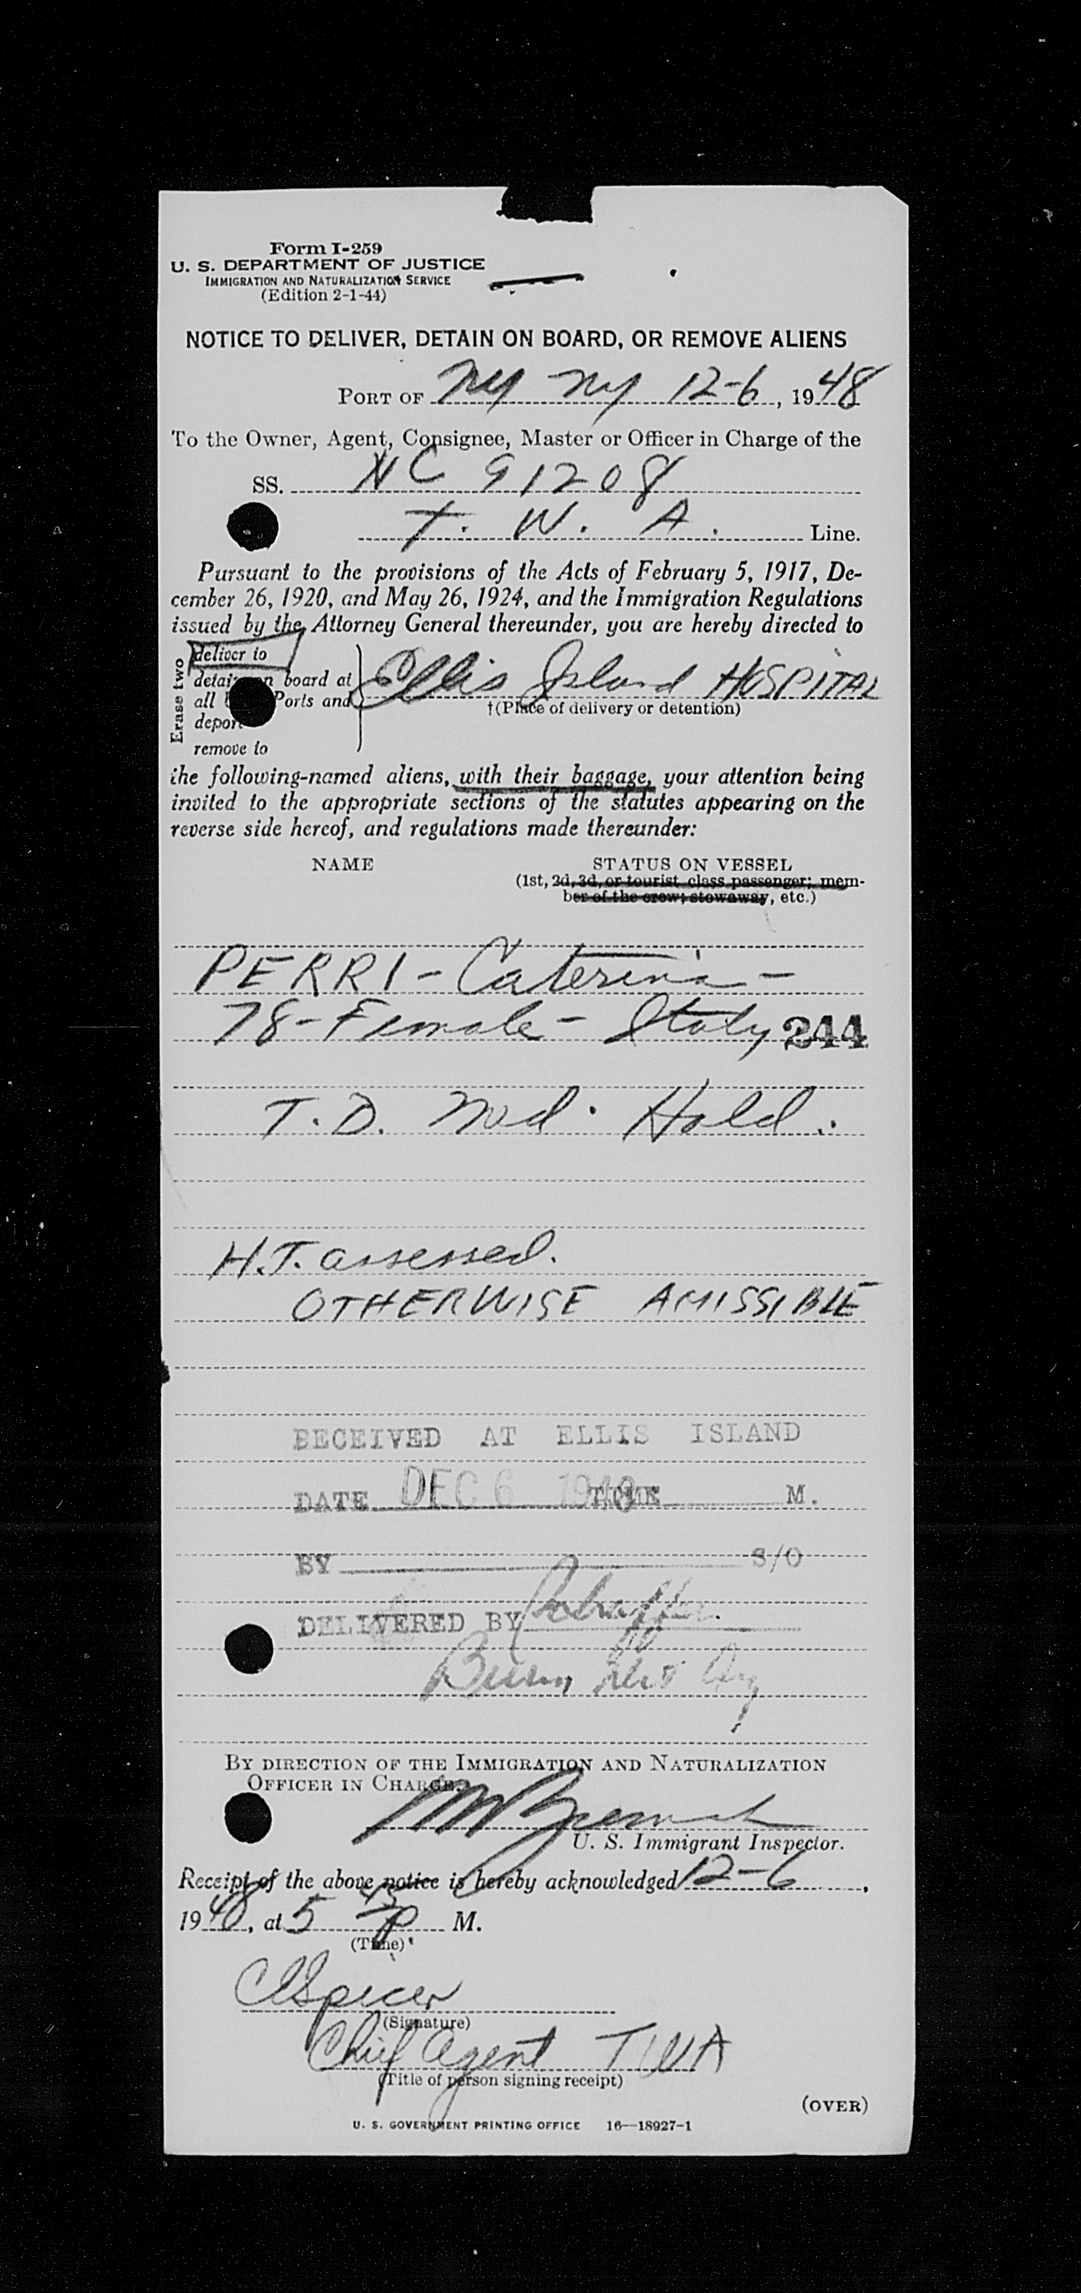 Form I-259
U. S. DEPARTMENT OF JUSTICE
IMMIGRATION AND NATURALIZATION SERVICE
(Edition 2-1-44)
NOTICE TO DELIVER, DETAIN ON BOARD, OR REMOVE ALIENS
PORT OF NY NY 12-6, 1948
To the Owner, Agent, Consignee, Master or Officer in Charge of the
SS. NC 91208
T. W. A. Line.
Pursuant to the provisions of the Acts of February 5, 1917, De-
cember 26, 1920, and May 26, 1924, and the Immigration Regulations
issued by the Attorney General thereunder, you are hereby directed to
Erase two
deliver to
detain on board at
all Ports and
deport
remove to
Ellis Island HOSPITAL
†(Place of delivery or detention)
the following-named aliens, with their baggage, your attention being
invited to the appropriate sections of the statutes appearing on the
reverse side hereof, and regulations made thereunder:
NAME STATUS ON VESSEL
(1st, 2d, 3d, or tourist class passenger; mem-
ber of the crew; stowaway, etc.)
PERRI - Caterina -
78 - Female - Italy 244
T. D. Med. Hold.
H.T. assessed.
OTHERWISE AMISSIBLE
RECEIVED AT ELLIS ISLAND
DATE DEC 6 1948 TIME M.
BY S/O
DELIVERED BY
BY DIRECTION OF THE IMMIGRATION AND NATURALIZATION
OFFICER IN CHARGE.
U. S. Immigrant Inspector.
Receipt of the above notice is hereby acknowledged 12-6,
1948, at 5 P M.
(Time)
Spicer
(Signature)
Chief Agent TWA
(Title of person signing receipt)
(OVER)
U. S. GOVERNMENT PRINTING OFFICE 16—18927-1